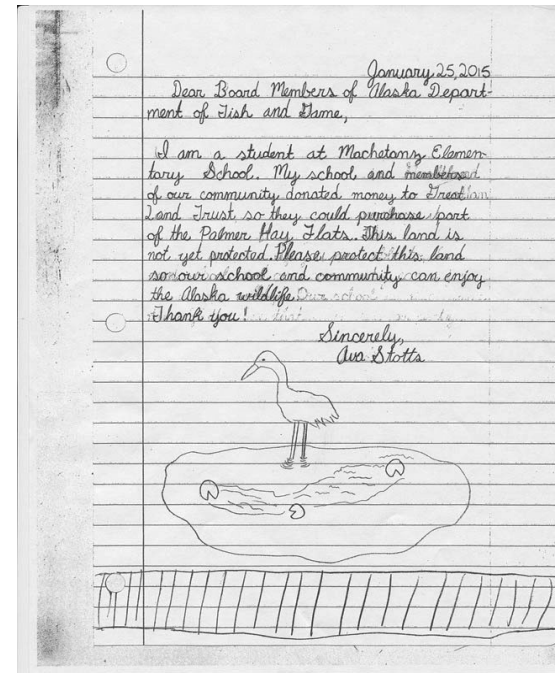 January 25, 2015
Dear Board Members of Alaska Depart-
ment of Fish and Game,
I am a student at Machetanz Elemen-
tary School. My school and members
of our community donated money to Great
Land Trust so they could purchase part
of the Palmer Hay Flats. This land is
not yet protected. Please protect this land
so our school and community can enjoy
the Alaska wildlife.
Thank you!
Sincerely,
Ava Stotts